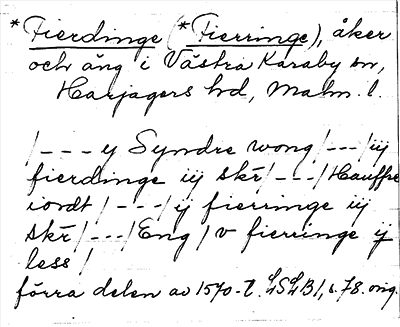 *Fierdinge (*Fierringe), åker
och äng i Västra Karaby sn,
Harjagers hd, Malm. l.
/--- y Syndre wong /---/ iij
fierdinge iij skr /---/ Hauffre
iordt /---/ ij fierringe iij
skr /---/ Eng / v fierringe ij
less /
förra delen av 1570-t. LSLB 1, s. 78. orig.